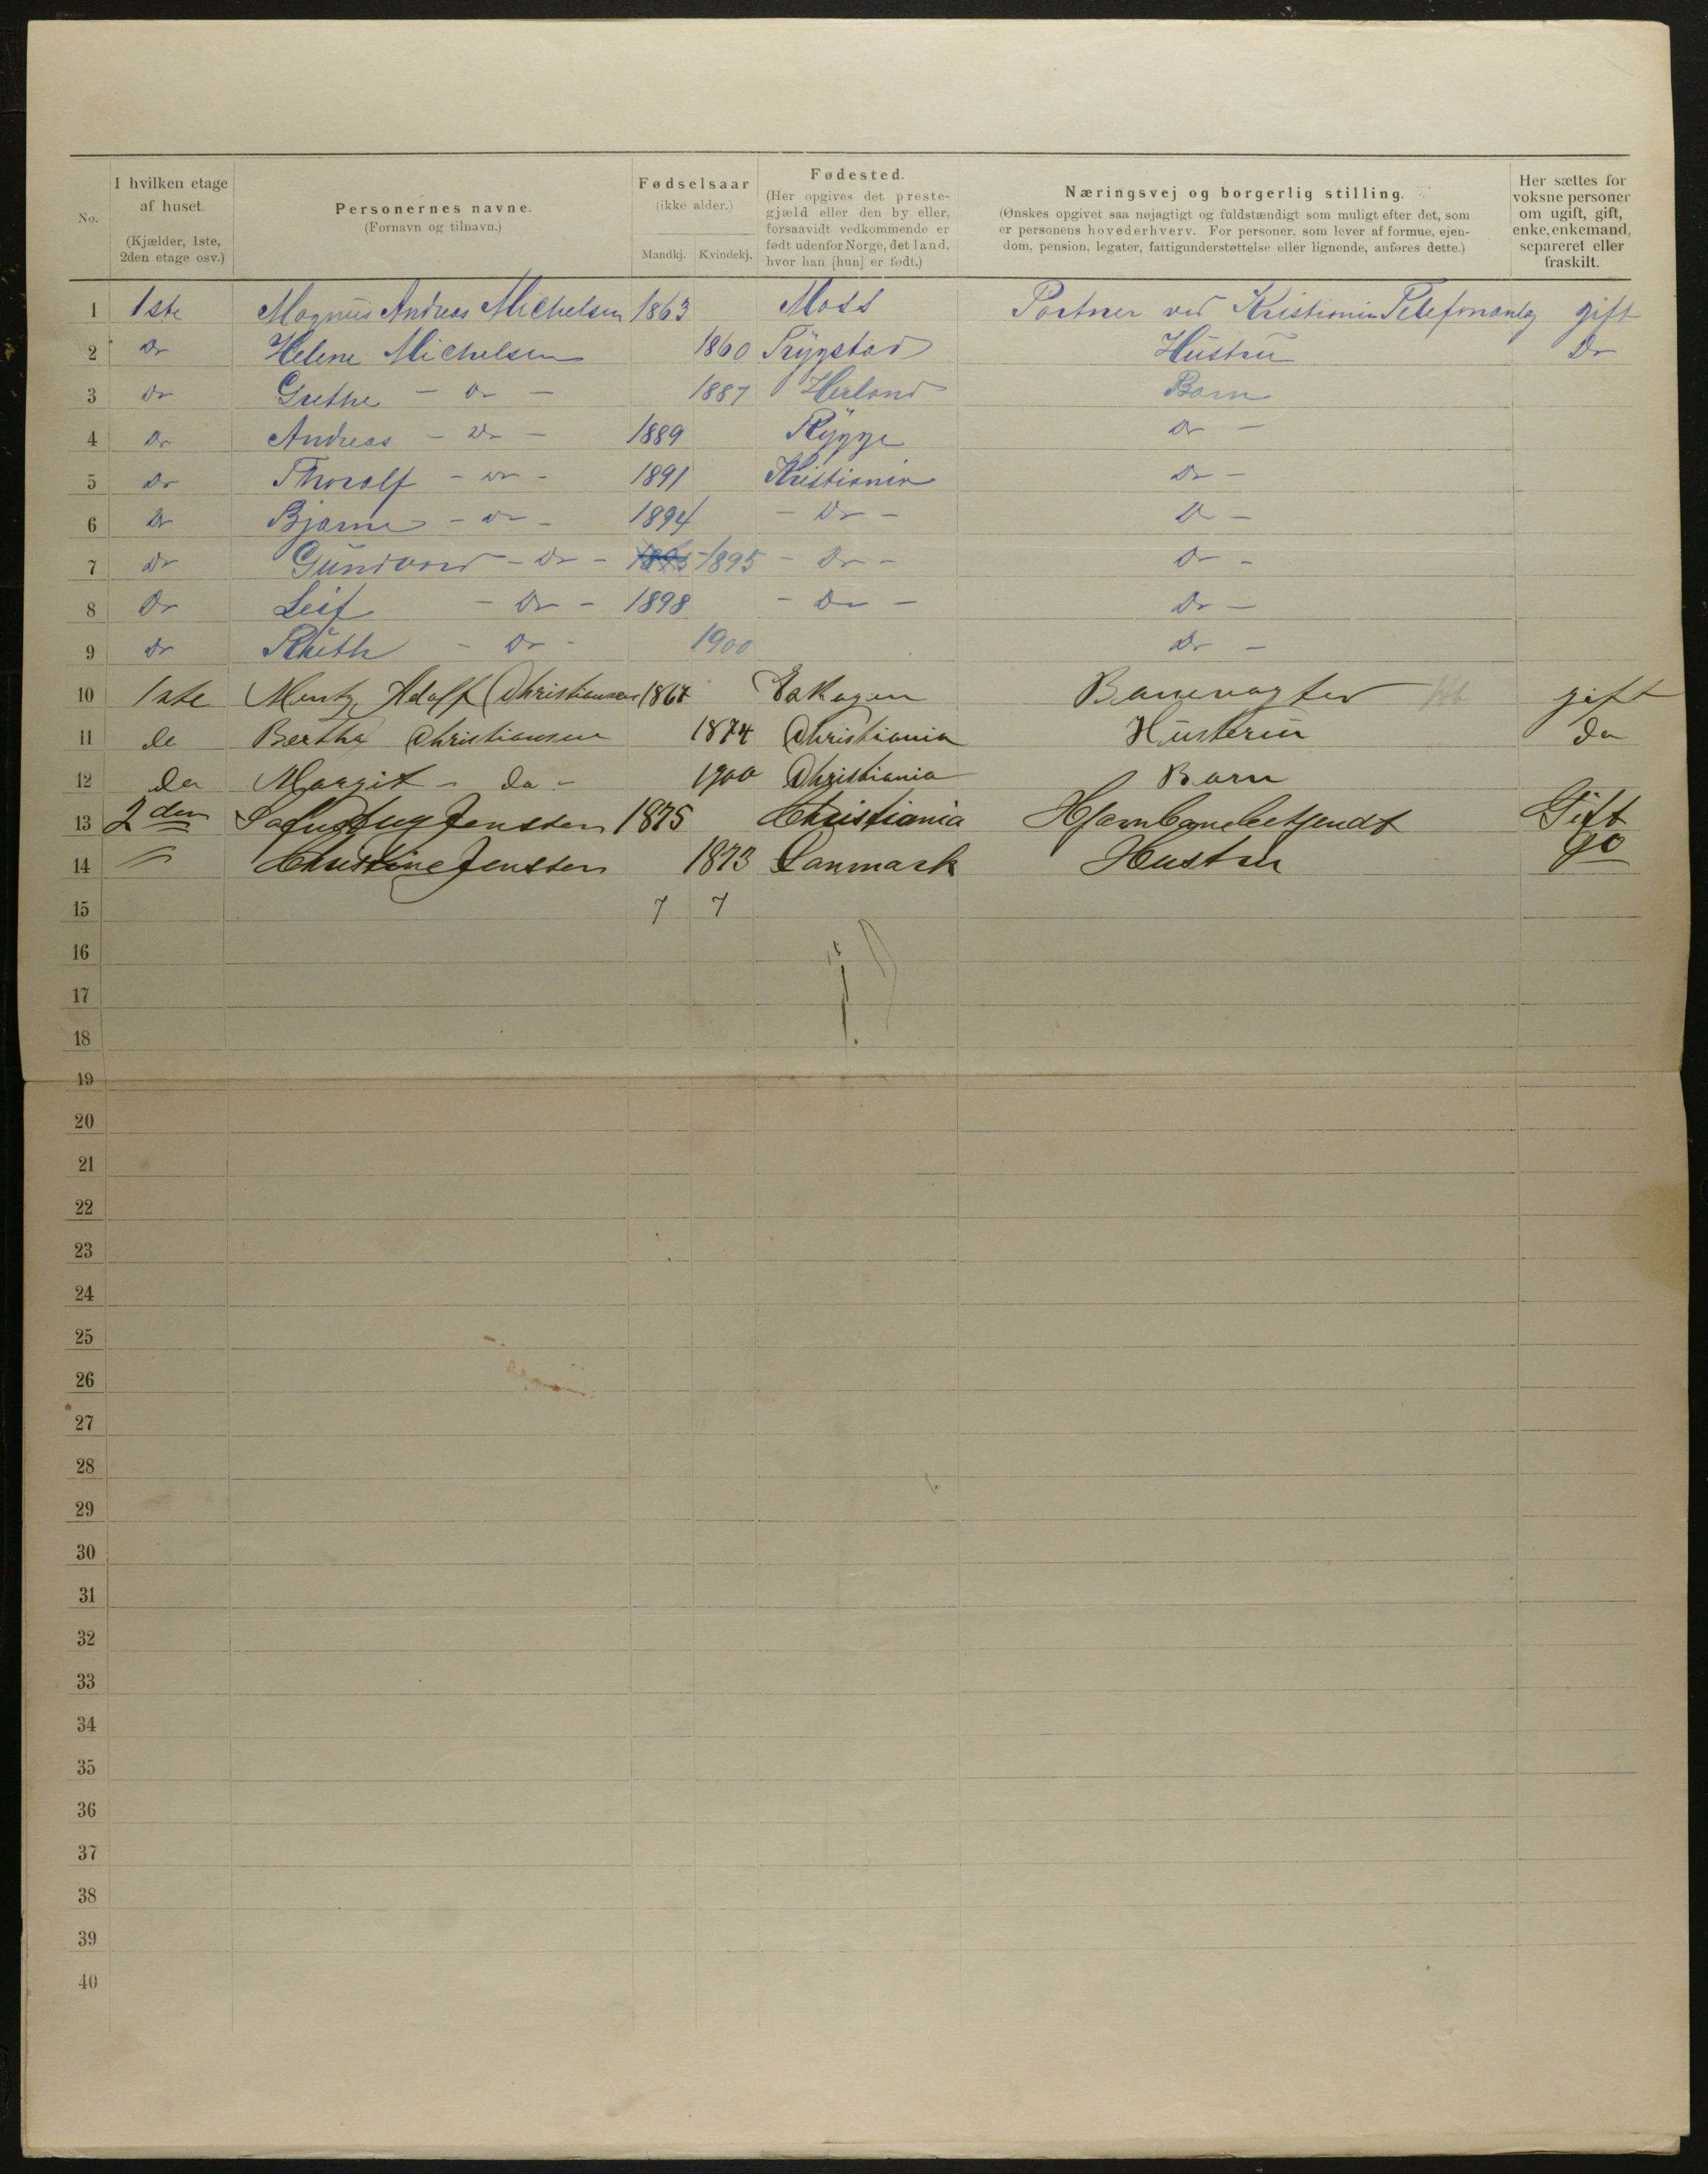 No.
I hvilken etage af huset. (Kjælder, 1ste, 2den etage osv.)
Personernes navne. (Fornavn og tilnavn.)
Fødselsaar (ikke alder.) Mandkj. Kvindekj.
Fødested. (Her opgives det prestegjæld eller den by eller, forsaavidt vedkommende er født udenfor Norge, det land, hvor han [hun] er født.)
Næringsvej og borgerlig stilling. (Ønskes opgivet saa nøjagtigt og fuldstændigt som muligt efter det, som er personens hovederhverv. For personer, som lever af formue, ejendom, pension, legater, fattigunderstøttelse eller lignende, anføres dette.)
Her sættes for voksne personer om ugift, gift, enke, enkemand, separeret eller fraskilt.
1 1ste Magnus Andreas Michelsen 1863 Moss Portner ved Kristiania Telefonanlæg gift
2 Do Helene Michelsen 1860 Trygstad Hustru Do
3 Do Grethe - Do - 1887 Herland Barn
4 Do Andreas - Do - 1889 Rygge Do -
5 Do Thoralf - Do - 1891 Kristiania Do -
6 Do Bjarne - Do - 1894 - Do - Do -
7 Do Gundvor - Do - 1895 1895 - Do - Do -
8 Do Leif - Do - 1898 - Do - Do -
9 Do Ruth - Do - 1900 Do -
10 1ste Mentz Adolf Christiansen 1867 Banevogter gift
11 do Bertha Christiansen 1874 Christiania Husteru do
12 do Margit - do - 1900 Christiania Barn
13 2den Jenssen 1875 Christiania Hjærnbanebetjendt Gift
14 " Christine Jenssen 1873 Danmark Hustru Do
15 7 7
16
17
18
19
20
21
22
23
24
25
26
27
28
29
30
31
32
33
34
35
36
37
38
39
40